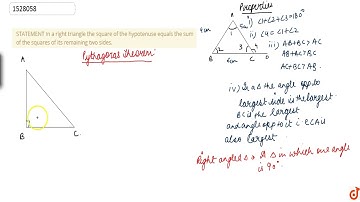 1528058
STATEMENT In a right triangle the square of the hypotenuse equals the sum
of the squares of its remaining two sides.
Pythagoras Theorem
A
B
C
Properties
A
4cm
5cm
1
2
3
4
B
6cm
C
D
i) ∠1+∠2+∠3=180°
ii) ∠4 = ∠1+∠2
iii) AB+BC>AC
AB+AC>BC
AC+BC>AB
iv) In a Δ the angle opp to
largest side is the largest.
BC is the largest
and angle opp to it i.e ∠A is
also largest.
Right angled Δ → A Δ in which one angle
is 90°.